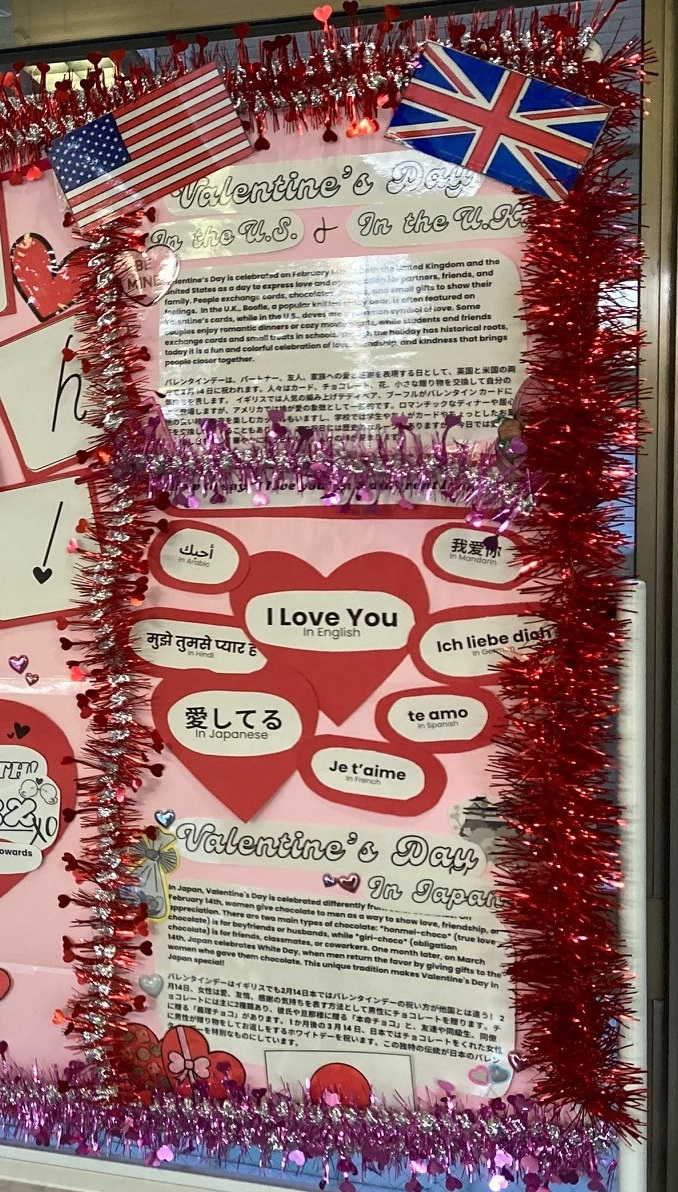 Valentine's Day
In the U.S. & In the U.K.
BE
MINE
Valentine's Day is celebrated on February 14th the United Kingdom and the
United States as a day to express love and for partners, friends, and
family. People exchange cards, chocolates and small gifts to show their
feelings. In the U.K., Boofle, a popular knitted bear, is often featured on
Valentine's cards, while in the U.S., doves are symbol of love. Some
couples enjoy romantic dinners or cozy while students and friends
exchange cards and small treats in schools. the holiday has historical roots,
today it is a fun and colorful celebration of love, friendship, and kindness that brings
people closer together.
バレンタインデーは、パートナー、友人、家族への愛と感謝を表現する日として、英国と米国の両
方で2月14日に祝われます。人々はカード、チョコレート、花、小さな贈り物を交換して自分の
気持ちを表します。イギリスでは人気の編み上げテディベア、ブーフルがバレンタイン カードに
登場しますが、アメリカでは鳩が愛の象徴として一般的です。ロマンチックなディナーや居心
أحبك
in Arabic
我爱你
in Mandarin
I Love You
in English
मुझे तुमसे प्यार है
in Hindi
Ich liebe dich
in German
愛してる
In Japanese
te amo
in Spanish
Je t'aime
in French
h
!
TH
XO
owards
Valentine's Day
In Japan
In Japan, Valentine's Day is celebrated differently from On
February 14th, women give chocolate to men as a way to show love, friendship, or
appreciation. There are two main types of chocolate: *honmei-choco* (true love
chocolate) is for boyfriends or husbands, while *giri-choco* (obligation
chocolate) is for friends, classmates, or coworkers. One month later, on March
14th, Japan celebrates White Day, when men return the favor by giving gifts to the
women who gave them chocolate. This unique tradition makes Valentine's Day in
Japan special!
バレンタインデーはイギリスでも2月14日日本ではバレンタインデーの祝い方が他国とは違う！2
月14日、女性は愛、友情、感謝の気持ちを表す方法として男性にチョコレートを贈ります。チ
ョコレートには主に2種類あり、彼氏や旦那様に贈る「本命チョコ」と、友達や同級生、同僚
に贈る「義理チョコ」があります。1か月後の3月14日、日本ではチョコレートをくれた女性
に男性が贈り物をしてお返しをするホワイトデーを祝います。この独特の伝統が日本のバレン
タインデーを特別なものにしています。